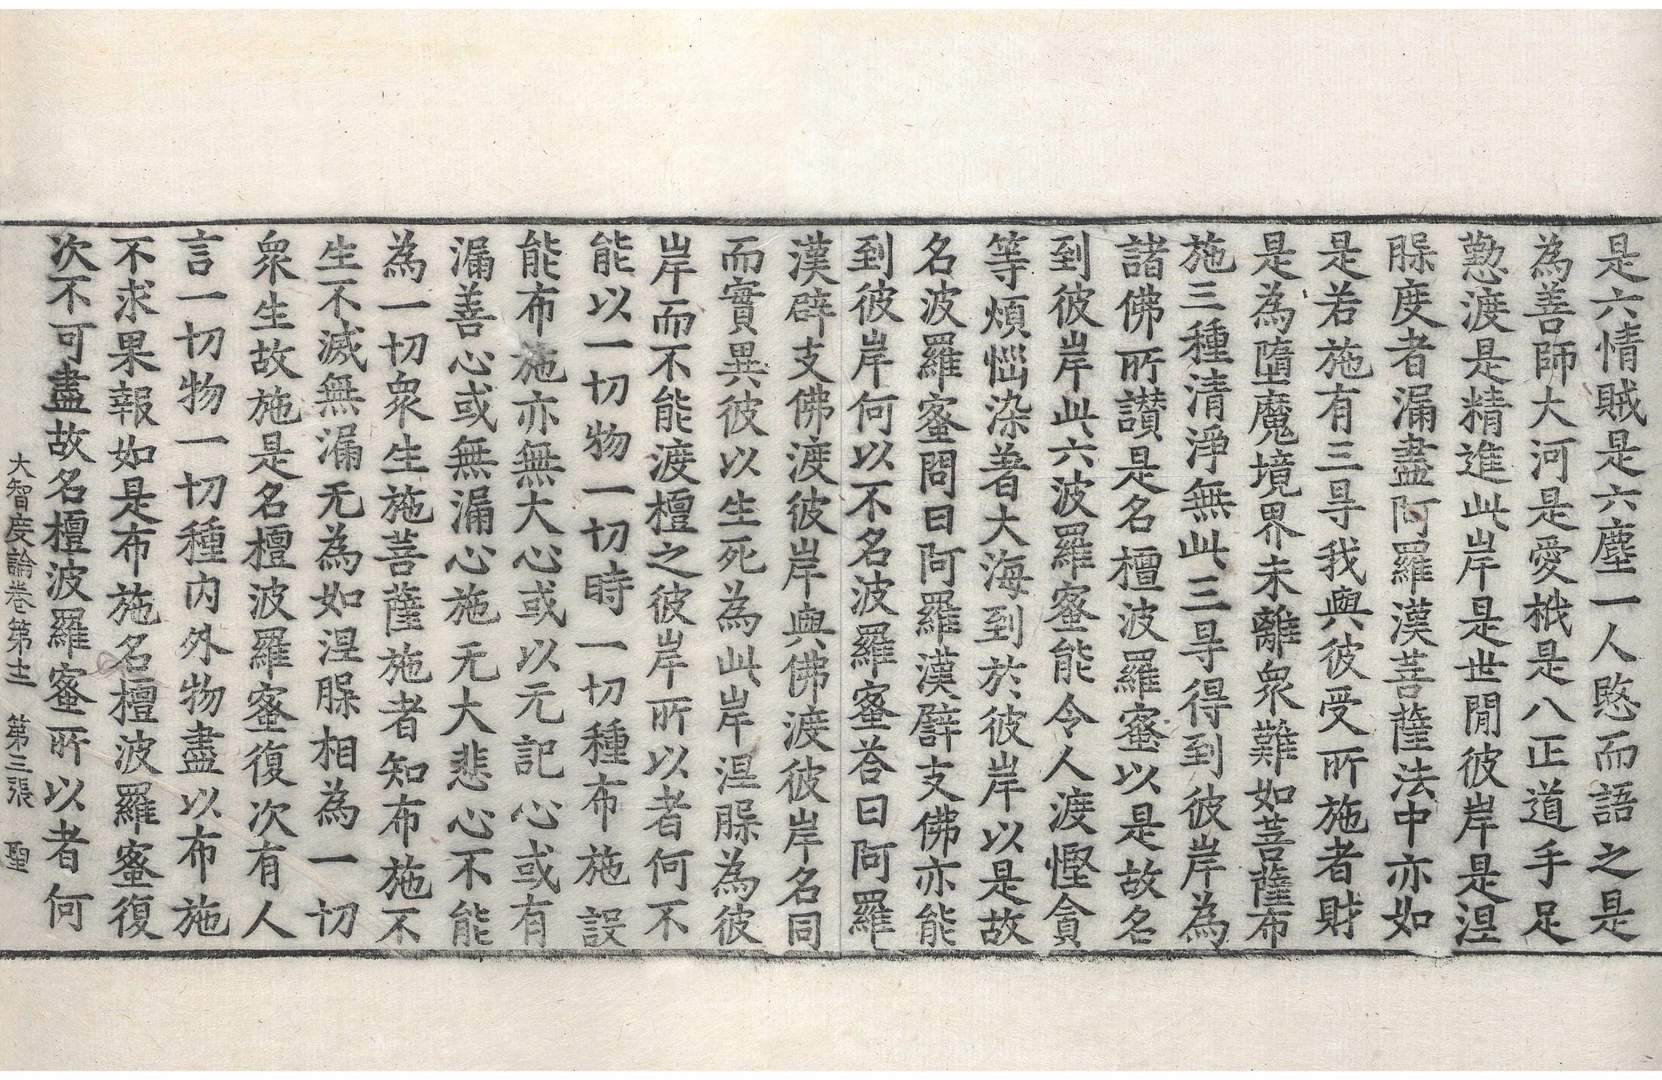 是六情賊是六塵一人愍而語之是
為善師大河是愛栰是八正道手足
懃渡是精進此岸是世閒彼岸是涅
𦙾度者漏盡阿羅漢菩薩法中亦如
是若施有三㝵我與彼受所施者財
是為墮魔境界未離衆難如菩薩布
施三種清淨無此三㝵得到彼岸為
諸佛所讃是名檀波羅蜜以是故名
到彼岸此六波羅蜜能令人渡慳貪
等煩惱染著大海到於彼岸以是故
名波羅蜜問曰阿羅漢辟支佛亦能
到彼岸何以不名波羅蜜荅曰阿羅
漢辟支佛渡彼岸與佛渡彼岸名同
而實異彼以生死為此岸涅𦙾為彼
岸而不能渡檀之彼岸所以者何不
能以一切物一切時一切種布施設
能布施亦無大心或以无記心或有
漏善心或無漏心施无大悲心不能
為一切衆生施菩薩施者知布施不
生不滅無漏无為如涅𦙾相為一切
衆生故施是名檀波羅蜜復次有人
言一切物一切種內外物盡以布施
不求果報如是布施名檀波羅蜜復
次不可盡故名檀波羅蜜所以者何
大智度論卷第十二 第三張 聖